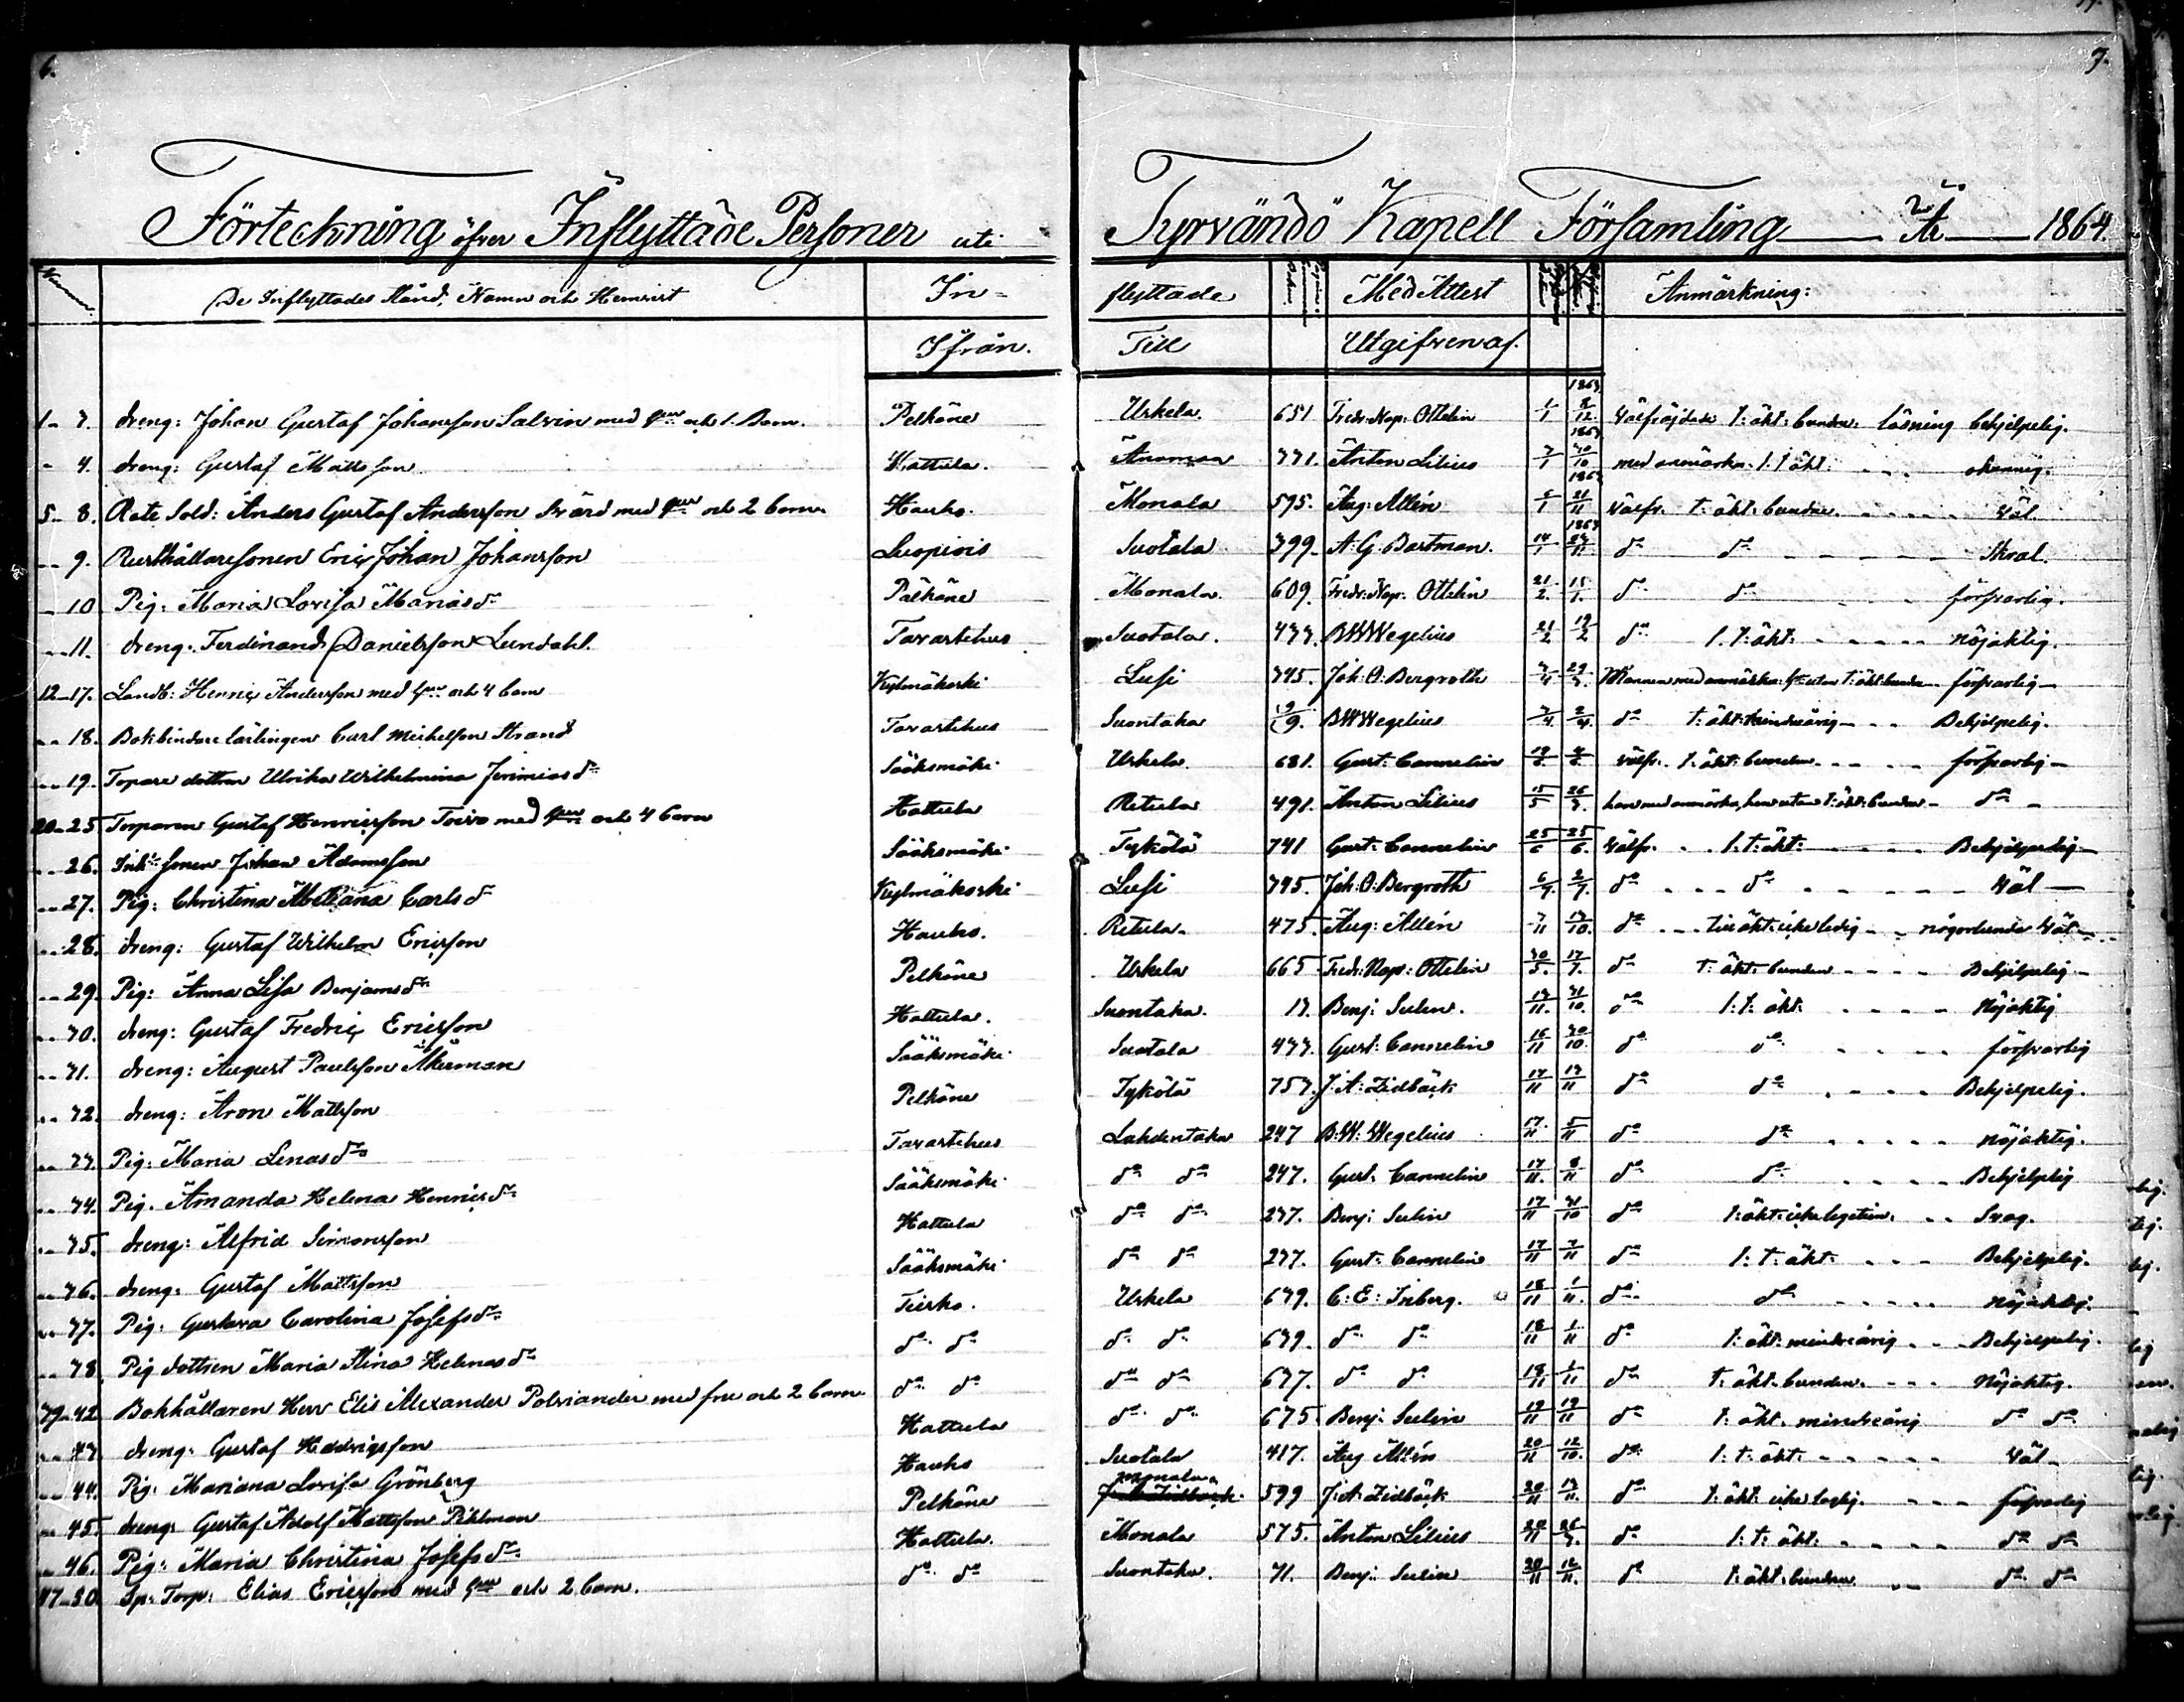 6.
7.
Förteckning öfver Inflyttade Personer uti Tyrvändö Kapell Församling År 1864.
De Inflyttades Stånd, Namn och Hemvist In- flyttade Med Attest Anmärkning:
Ifrån. Till Utgifven af.
1-3. dreng: Johan Gustaf Johansson Salvin med och 1. Barn. Pelkäne Urkela. 651 Fredr. Nap. Ottelin 1/1 1863 12. välfräjdade t: äkt: bunden. läsning behjelpelig.
- 4. dreng: Gustaf Mattsson Hattula. 331. Anton Lilius 3/1 1863 30/10 med anmärkn. l. t äkt.
5- 8. Rote Sold: Anders Gustaf Andersson Svärd med och 2 barn Hauho. Monala 595. Aug: Allén 1863 21/11 välfr. t: äkt: bunden. Väl
-- 9. Rusthållaresonen Eric Johan Johansson Luopiois Suotala 399. A. G. Bartman. 14/1 1863 do do Skral.
- 10 Pig: Maria Lovisa Mariasdr Pälkäne Monala. 609. Fredr. Nap. Ottelin 21/2. 15/1. do do försvarlig.
-- 11. dreng. Ferdinand Danielsson Lundahl. Tavastehus Suotala. 433. BWWegelius 21/2 19/2 do l. t: äkt. nöjaktig.
12-17. Landb: Henric Andersson med och 4 barn Kylmäkoski Lusi 345. Joh: O: Bergroth 3/4 29/3. försvarlig
-- 18. Bokbindare lärlingen Carl Michelsson Strand Tavastehus Suontaka 9. BWWegelius 3/4. 2/4. do t: äkt: minderårig Behjelpelig.
-- 19. Torpare dottren Ulrika Wilhelmina Jeremiasdr Sääksmäki Urkela. 681. Gust: Cannelin välfr. t. äkt: bunden försvarlig
20-25 Torparen Gustaf Henricsson Toivo med och 4 barn Hattula Retula 491. Anton Lilius 15/5 26/3. han med anmärkn, hon utan t: äkt: bunden do
-- 26. Inhs sonen Johan Adamsson Sääksmäki Tykölä 741 Gust: Cannelin 25/6 25/6. Välfr. l. t: äkt: Behjelpelig
-- 27. Pig: Christina Carlsdr Kylmäkoski Lusi 345. Joh: O: Bergroth 6/7. 2/7. do do Väl
-- 28. dreng: Gustaf Wilhelm Ericsson Hauho. Retula. 475. Aug: Allén 3/11 13/10. do till äkt: icke ledig någorlunda Väl
-- 29. Pig: Anna Lisa Benjamsdr Pelkäne Urkela 665 Fredr: Nap: Ottelin 30/5. 17/7. do t: äkt: bunden Behjelpelig
-- 30. dreng: Gustaf Fredric Ericsson Hattula. Suontaka. 13. Benj: Selin. 13/11. 31/10. do l: t: äkt. Nöjaktig
-- 31. dreng: August Paulsson Åkerman Sääksmäki Suotala 433. Gust: Cannelin 16/11 30/10. do do försvarlig
-- 32. dreng: Aron Mattsson Pelkäne Tykölä 753. J: A: Zidbäck 17/11 13/11 do do Behjelpelig.
-- 33. Pig: Maria Lenasdr Tavastehus Lahdentaka 247 B: W: Wegelius 17/11 5/11 do do nöjaktig.
-- 34. Pig. Amanda Helena Henricsdr Sääksmäki do do 247. Gust: Cannelin 17/11. 8/11 do do Behjelpelig
-- 35. dreng: Alfrid Simonsson Hattula do do 237. Benj: Selin 17/11 31/10 do t: äkt: icke Svag.
-- 36. dreng: Gustaf Mattsson Sääksmäki do do 237. Gust: Cannelin 17/11 7/11 do l: t: äkt: Behjelpelig.
-- 37. Pig: Gustava Carolina Josefsdr Teisko. Urkela 639. C: E: Inberg. 18/11 1/11. do do nöjaktig.
-- 38 Pig dottren Maria Stina Helenasdr do do do do 639. do do 18/11 1/11 do t: äkt: minderårig Behjelpelig.
39-42 Bokhållaren Herr Elis Alexander Polviander med fru och 2 barn do do do do 637. do do 18/11 1/11 do t: äkt: bunden. Nöjaktig.
-- 43. dreng: Gustaf Hedvigsson Hattula do do 675. Benj: Selin 19/11 19/11 do t: äkt. minderårig do do
-- 44. Pig: Mariana Lovisa Grönberg Hauho Suotala 417. Aug Allén 20/11 12/10. do l: t: äkt: Väl
-- 45. dreng: Gustaf Adolf Mattsson Pihlman Pelkäne Monala 599 J: A: Zidbäck 20/11 13/11. do t: äkt: försvarlig
-- 46. Pig: Maria Christina Josefsdr Hattula. Monala 575. Anton Lilius 20/11 26/9. do l: t: äkt: do do
47-50 Sp: Torp: Elias Ericsson med och 2 barn. do do Suontaka. 31. Benj: Selin 20/11 12/11. do t: äkt: bunden do do